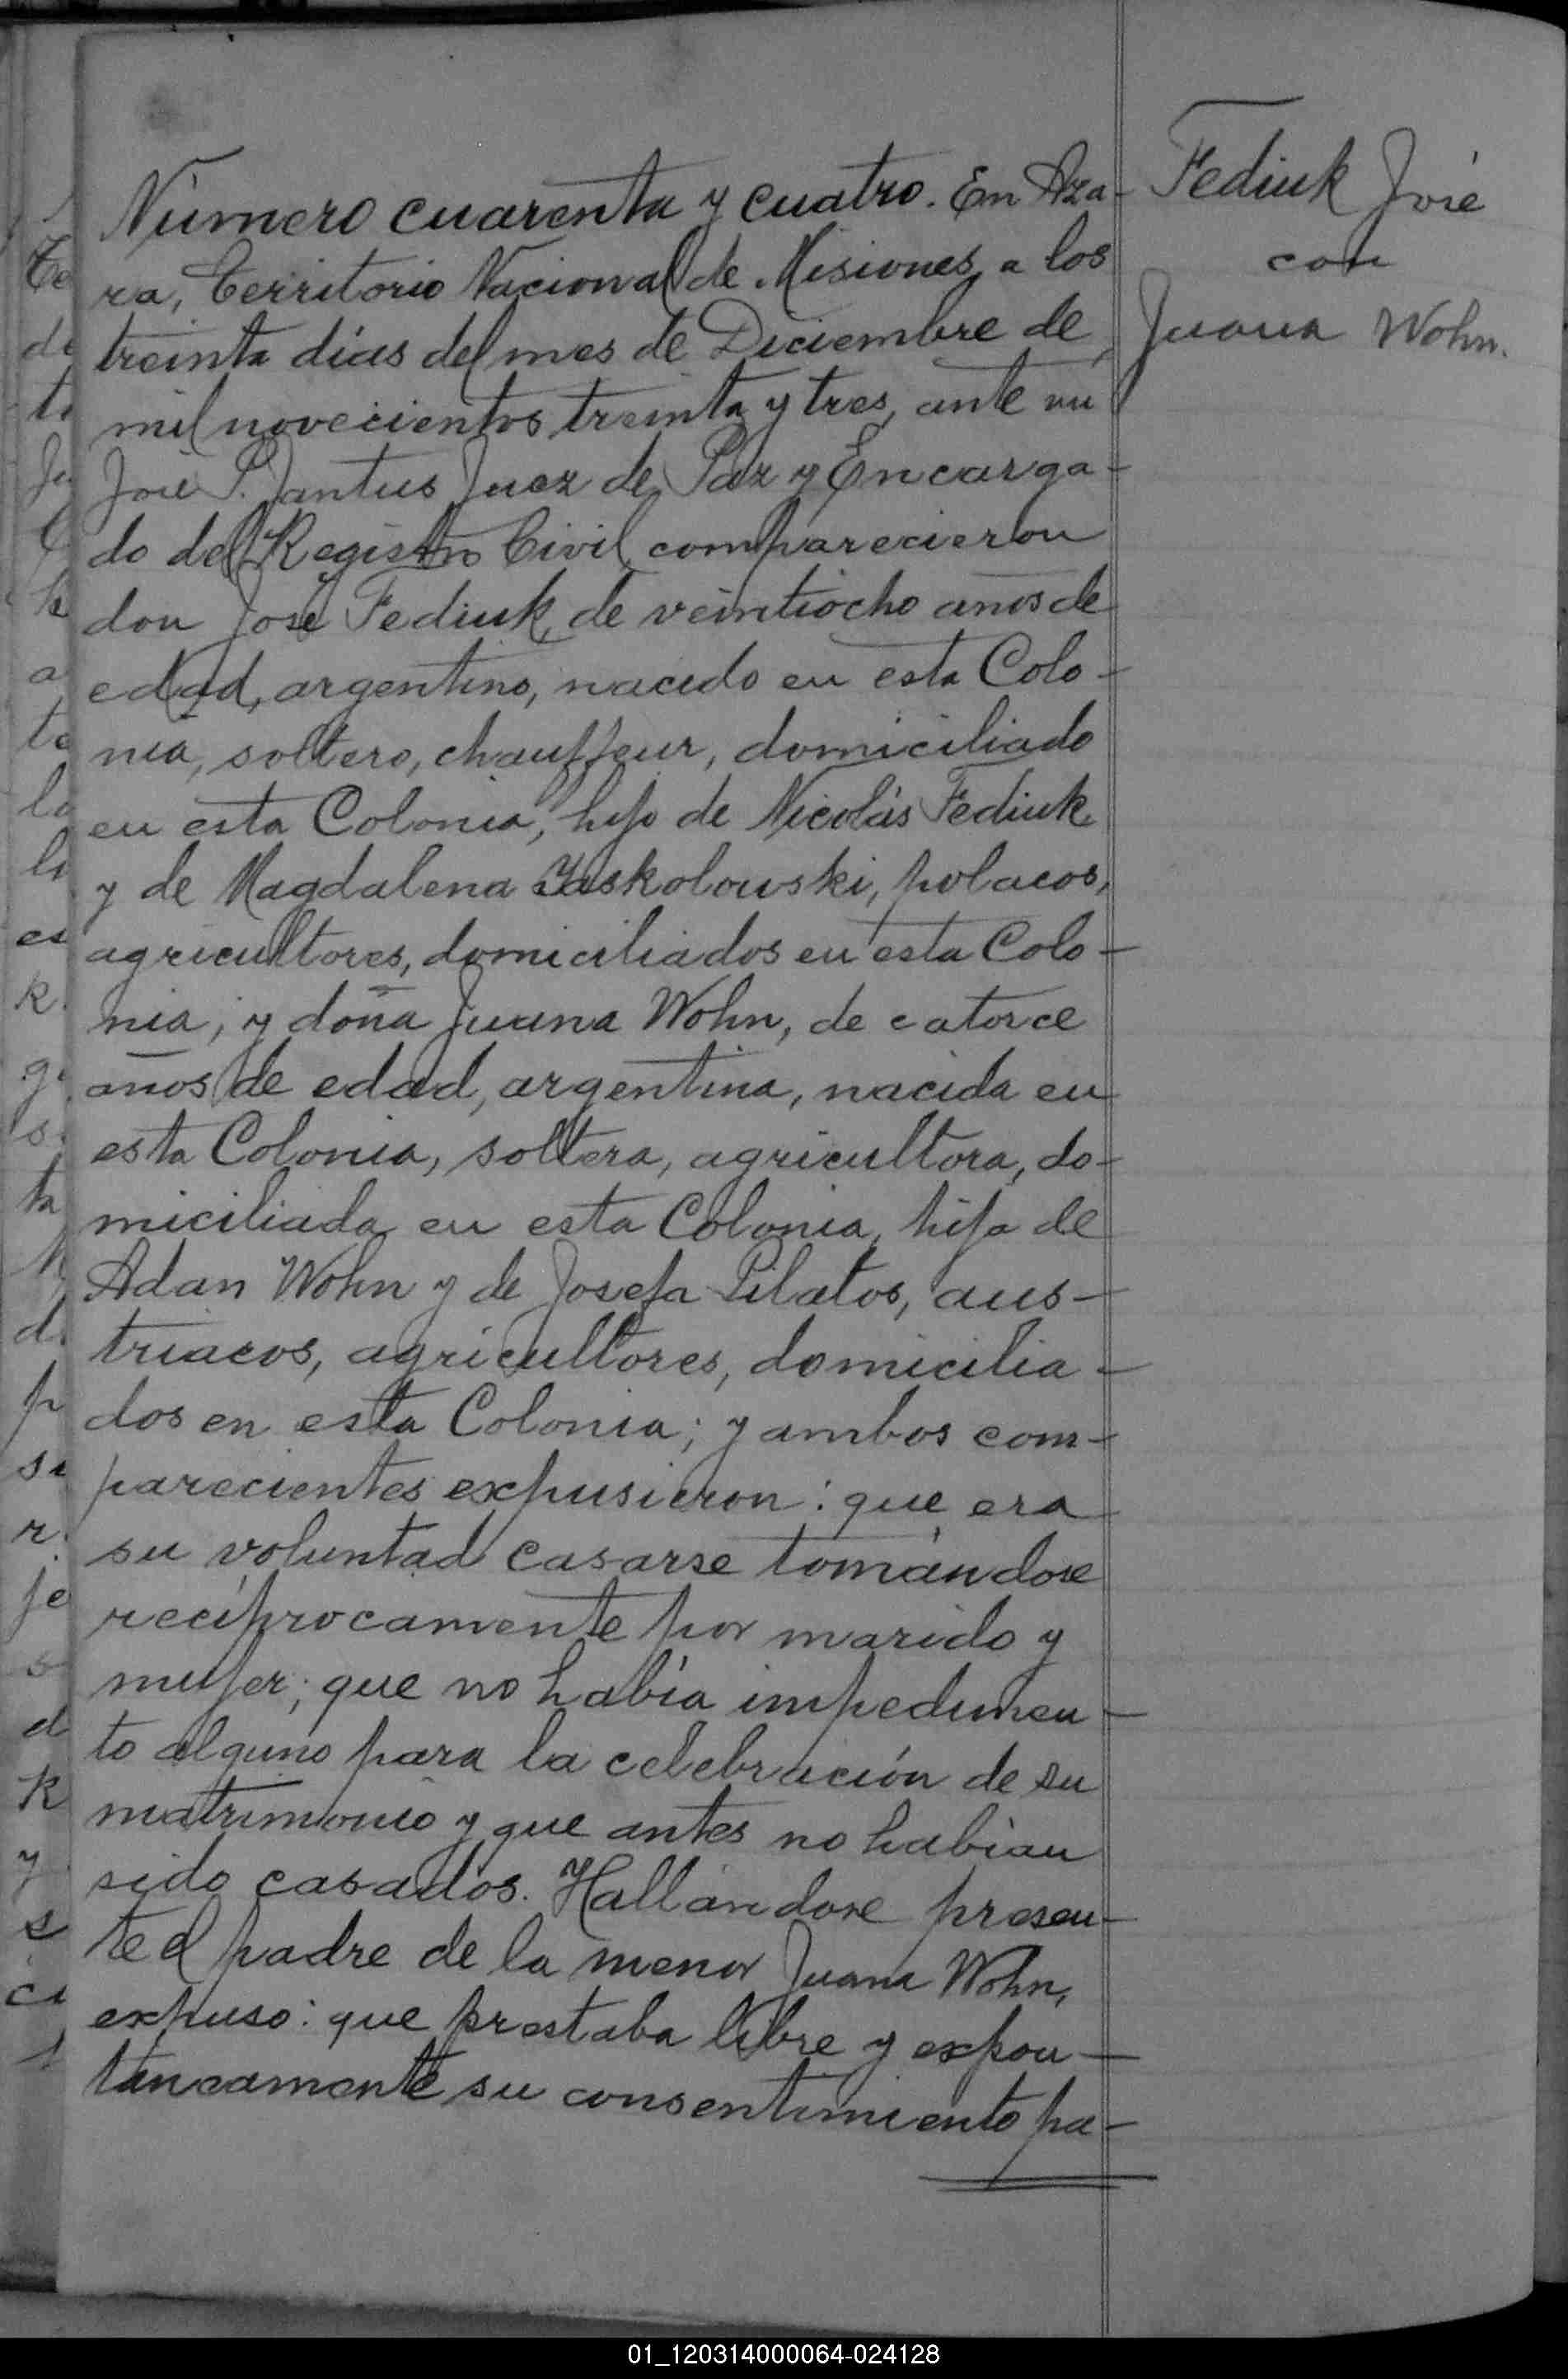 Fediuk José
con
Juana Wohn.
Número cuarenta y cuatro. En Aza-
ra, Territorio Nacional de Misiones, a los
treinta días del mes de Diciembre de
mil novecientos treinta y tres, ante mí
José P. Jantus Juez de Paz y Encarga-
do del Registro Civil, comparecieron
don José Fediuk, de veintiocho años de
edad, argentino, nacido en esta Colo-
nia, soltero, chauffeur, domiciliado
en esta Colonia, hijo de Nicolás Fediuk
y de Magdalena Yaskolowski, polacos,
agricultores, domiciliados en esta Colo-
nia; y doña Juana Wohn, de catorce
años de edad, argentina, nacida en
esta Colonia, soltera, agricultora, do-
miciliada en esta Colonia, hija de
Adan Wohn y de Josefa Pilatos, aus-
triacos, agricultores, domicilia-
dos en esta Colonia; y ambos com-
parecientes expusieron: que era
su voluntad casarse tomándose
recíprocamente por marido y
mujer; que no había impedimen-
to alguno para la celebración de su
matrimonio y que antes no habían
sido casados. Hallándose presen-
te el padre de la menor Juana Wohn,
expuso: que prestaba libre y expon-
táneamente su consentimiento pa-
01_120314000064-024128